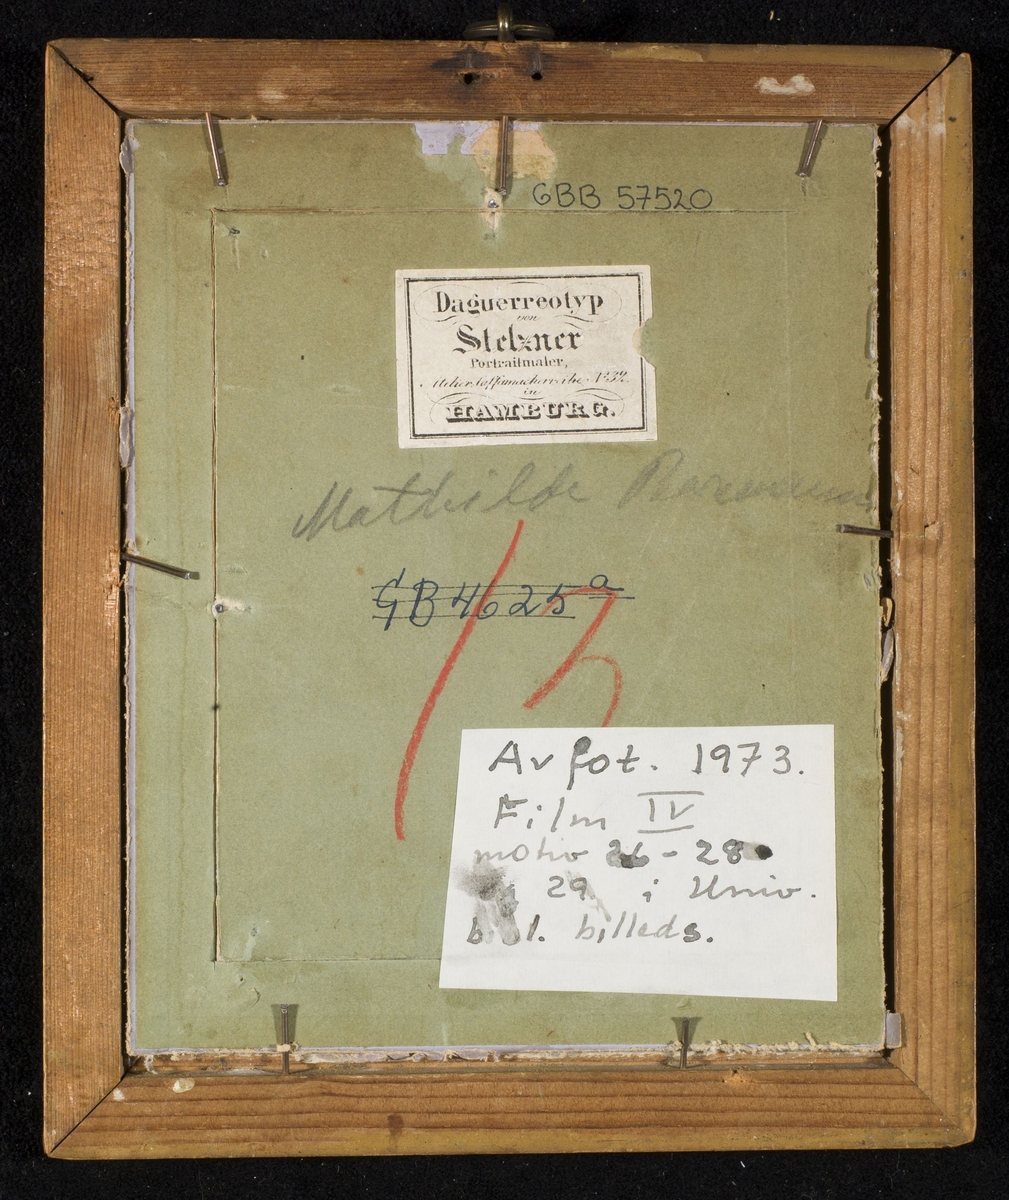 GBB 57520
Daguerreotyp
von
Stelzner
Portraitmaler,
Atelier Caffamacherreihe No. 32.
in
HAMBURG.
Mathilde
GB 4625a
Avfot. 1973.
Film IV
motiv 26-28
29 i Univ.
bibl. billeds.